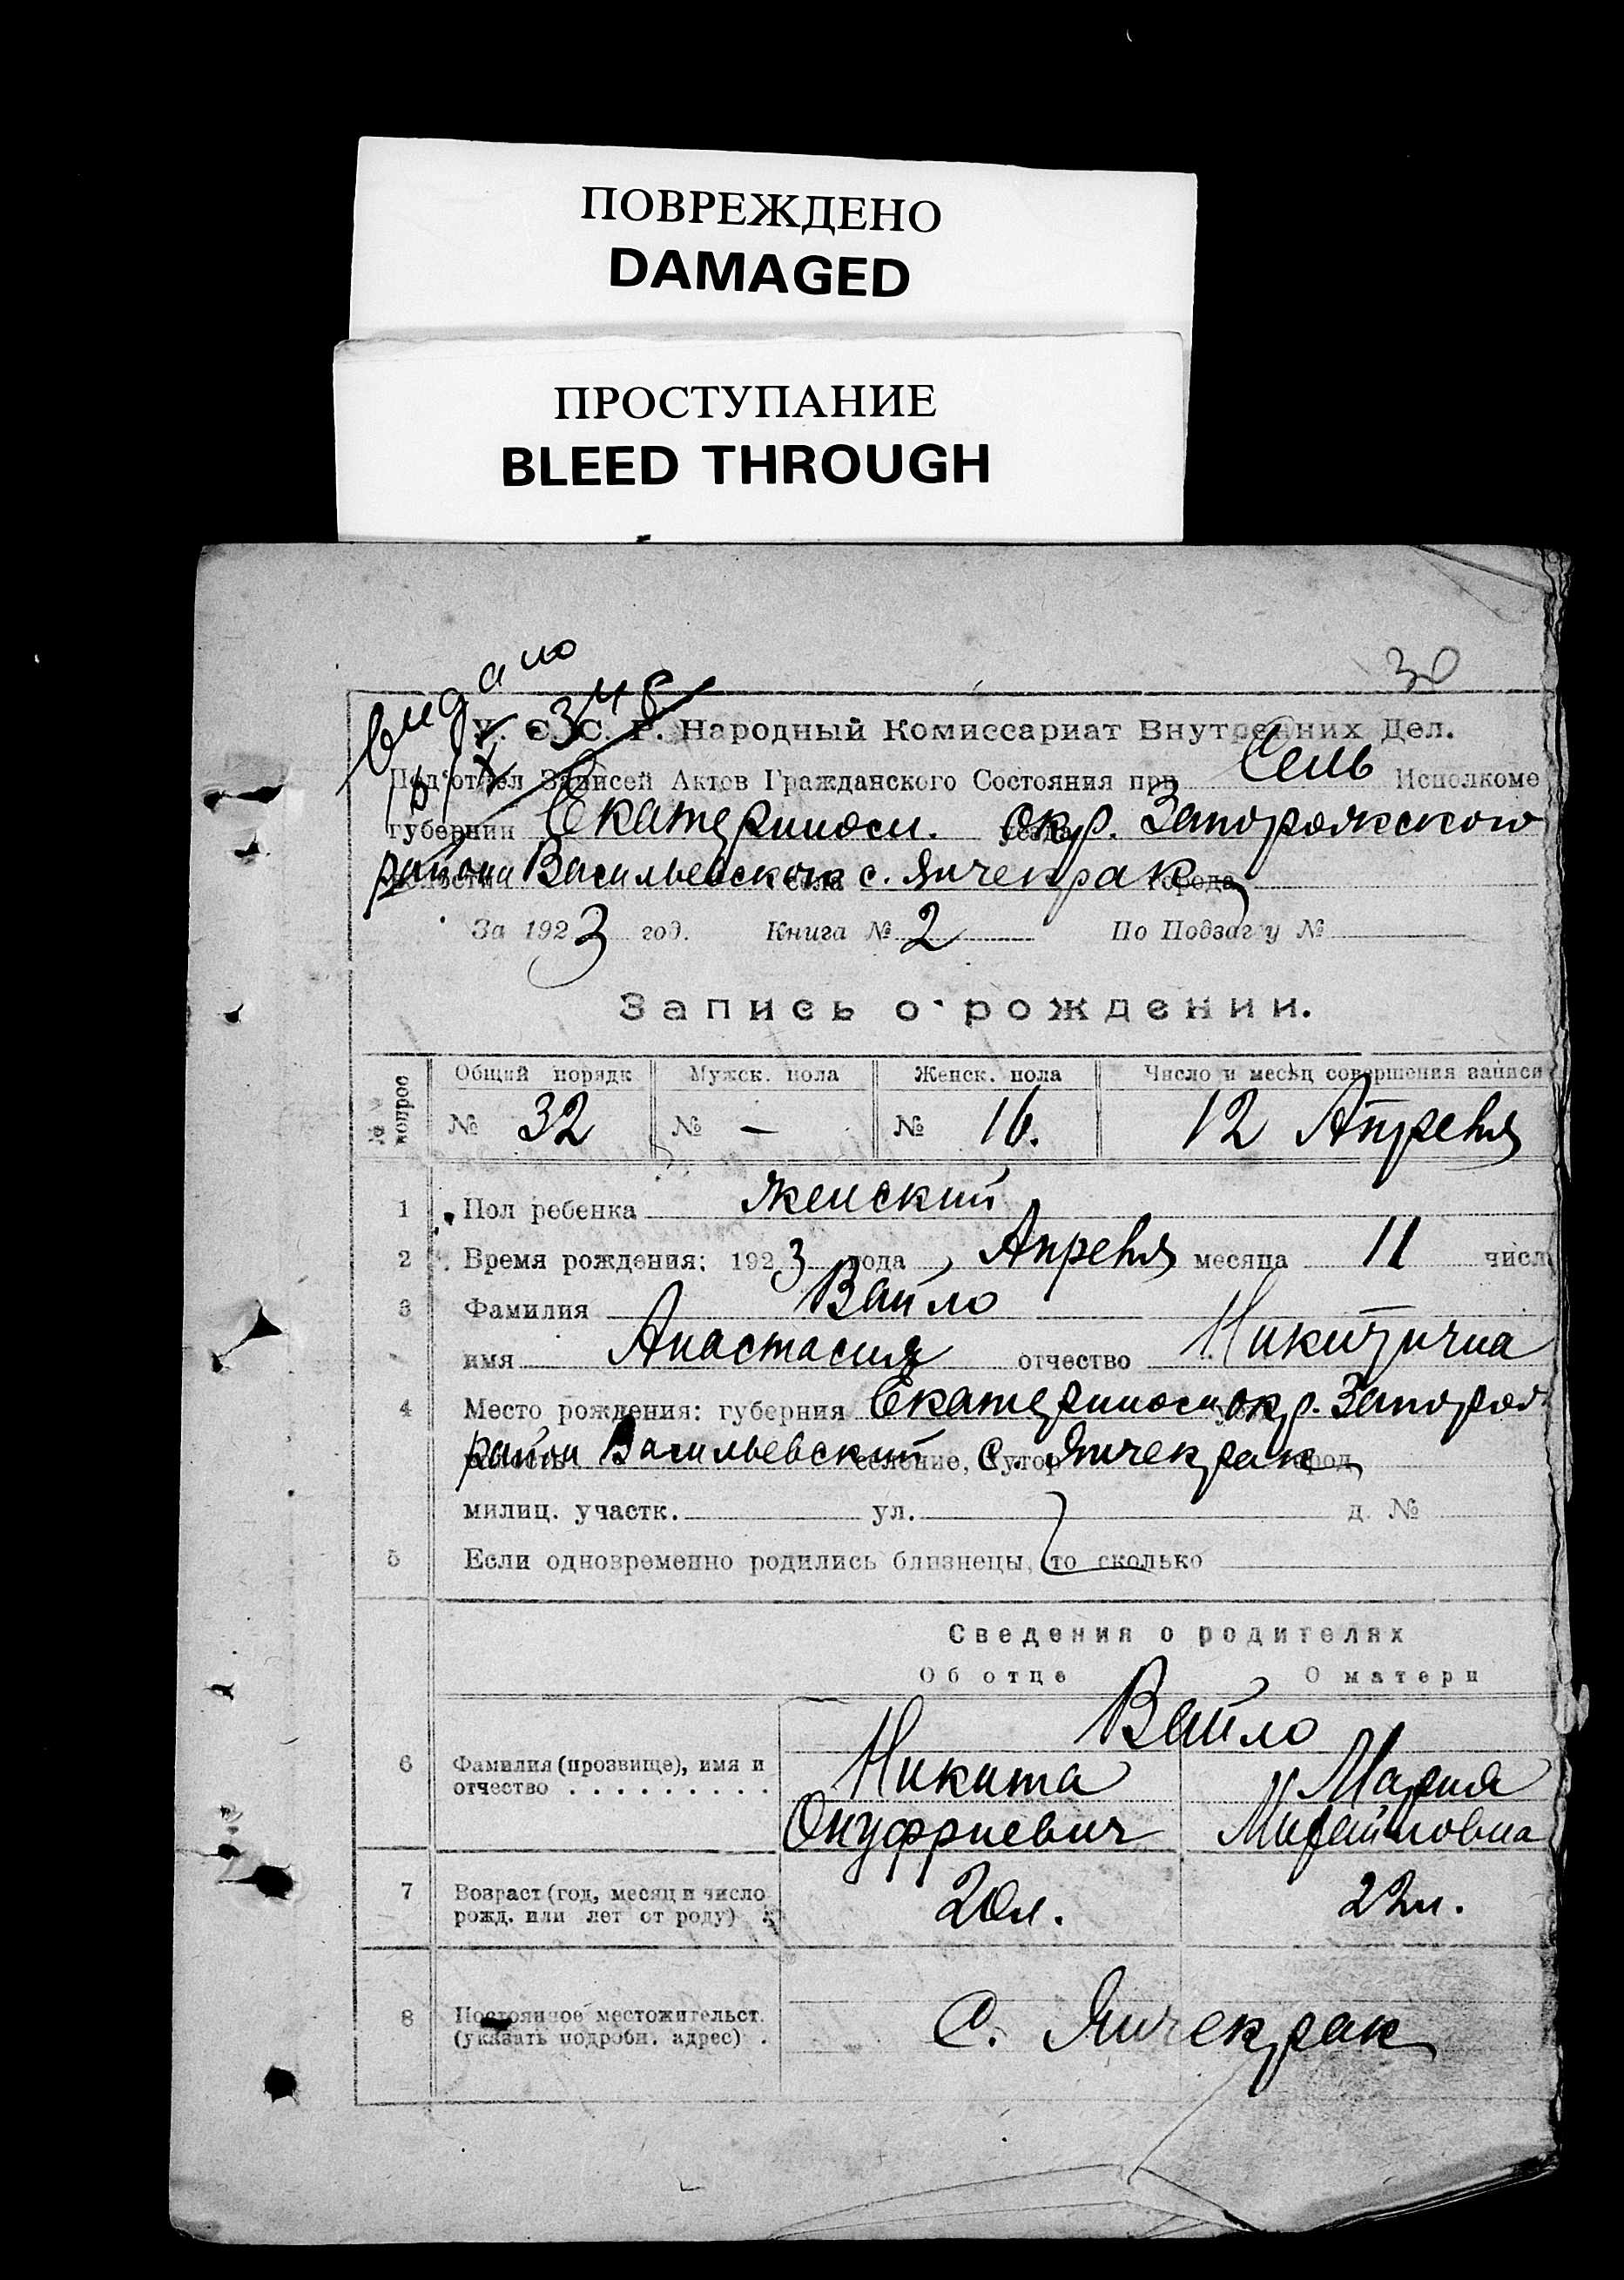 ПОВРЕЖДЕНО
DAMAGED
ПРОСТУПАНИЕ
BLEED THROUGH
30
видано
У. С. С. Р. Народный Комиссариат Внутренних Дел.
Под'отдел Записей Актов Гражданского Состояния при Сель Исполкоме
губернии Екатериносл. окр. Запорожского
района Васильевского с. Янчекрак города
За 1923 год. Книга № 2 По Подзагсу №
Запись о рождении.
№№ вопрос
Общий порядк Мужск. пола Женск. пола Число и месяц совершения записи
№ 32 № - № 16. 12 Апреля
1 Пол ребенка женский
2 Время рождения: 1923 года Апреля месяца 11 числ
3 Фамилия Вайло
имя Анастасия отчество Никитична
4 Место рождения: губерния Екатериносл окр. Запорож
район Васильевский селение, хутор с. Янчекрак город
милиц. участк. ул. д. №
5 Если одновременно родились близнецы, то сколько
Сведения о родителях
Об отце О матери
Вайло
6 Фамилия (прозвище), имя и Никита Мария
отчество . . . . . . . . . Онуфриевич Михайловна
7 Возраст (год, месяц и число 20л. 22л.
рожд. или лет от роду)
8 Постоянное местожительст. С. Янчекрак
(указать подробн. адрес) .